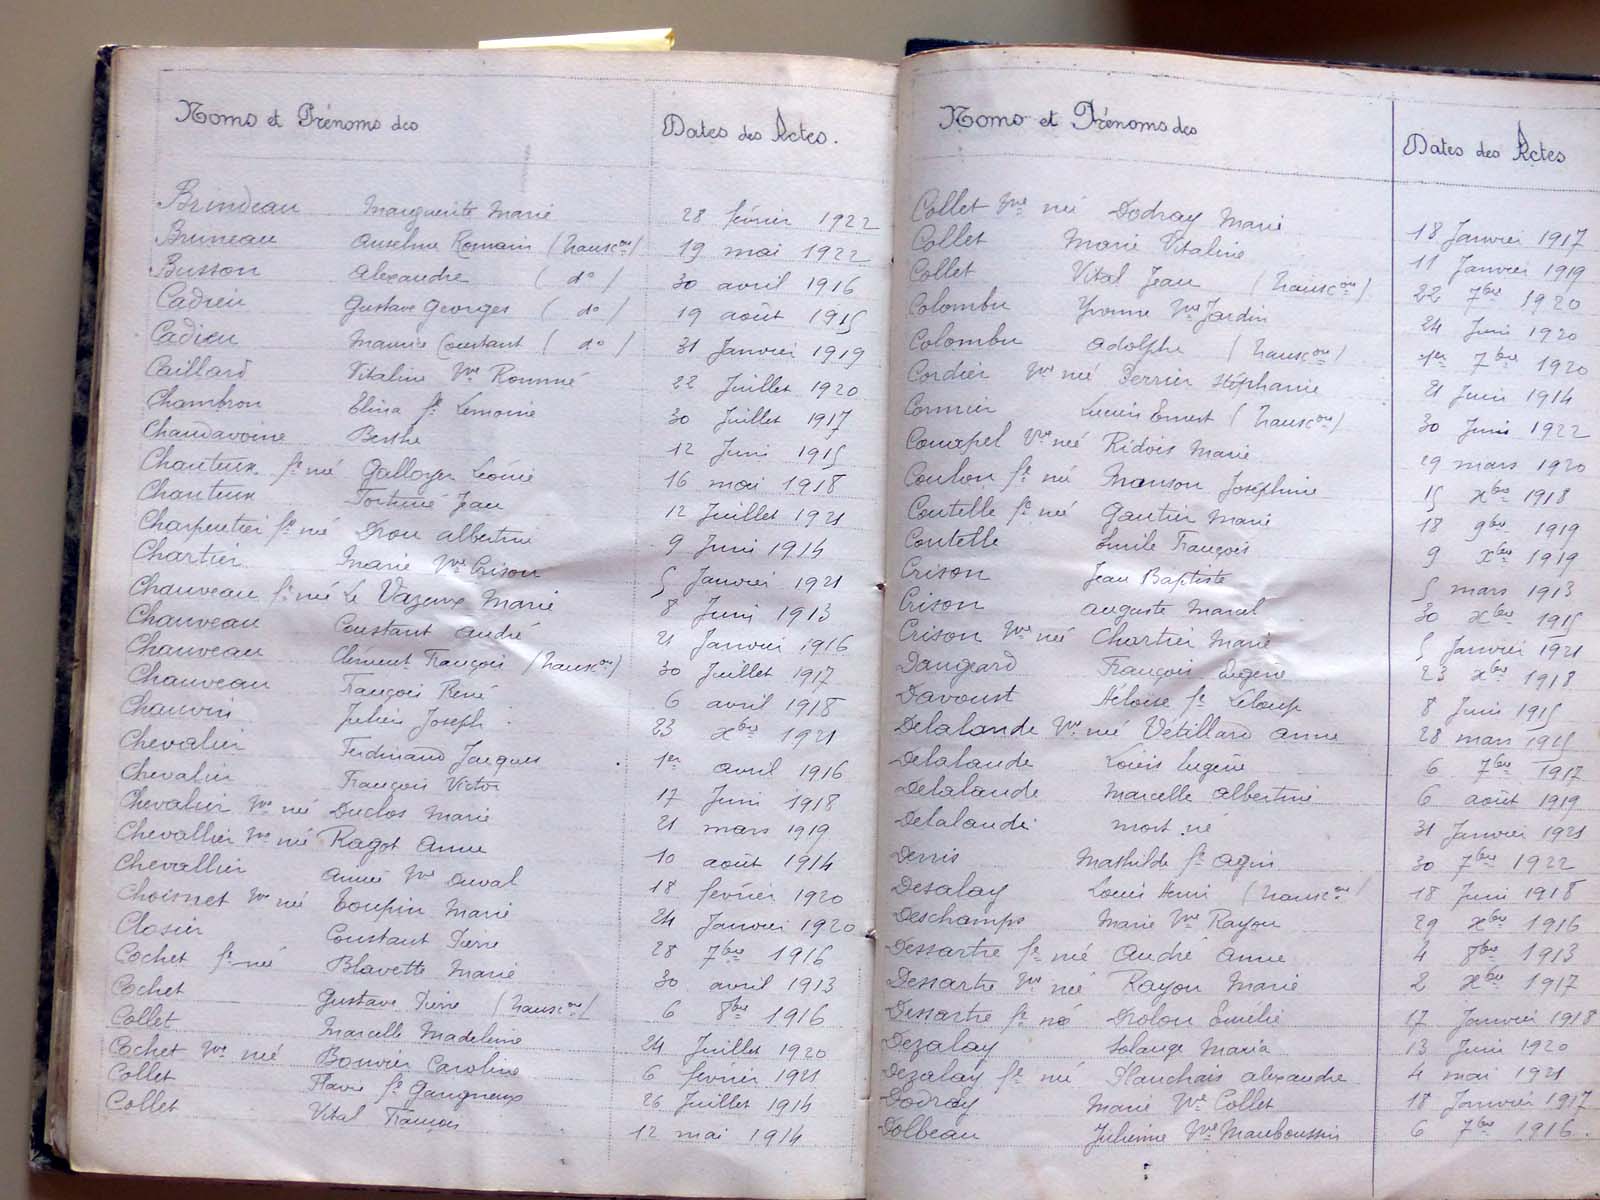 Noms et Prénoms des Dates des Actes.
Brindeau Marguerite Marie 28 février 1922
Bruneau Anselme Romain (transc.on) 19 mai 1922
Busson Alexandre (do) 30 avril 1916
Cadieu Gustave Georges (do) 19 août 1915
Cadieu Maurice Constant (do) 31 Janvier 1919
Caillard Vitaline Vve Rommé 22 Juillet 1920
Chambron Elina fe Lemoine 30 Juillet 1917
Chandavoine Berthe 12 Juin 1915
Chanteux fe née Galloyer Léonie 16 mai 1918
Chanteux Fortuné Jean 12 Juillet 1921
Charpentier fe née Drou Albertine 9 Juin 1914
Chartier Marie Vve Crison 5 Janvier 1921
Chauveau fe née Le Vazeux Marie 8 Juin 1913
Chauveau Constant André 21 Janvier 1916
Chauveau Clément François (transc.on) 30 Juillet 1917
Chauveau François René 6 avril 1918
Chauvin Julien Joseph 23 xbre 1921
Chevalier Ferdinand Jacques 1er avril 1916
Chevalier François Victor 17 Juin 1918
Chevalier Vve née Duclos Marie 21 mars 1919
Chevallier Vve née Ragot Anne 10 août 1914
Chevallier Anne Vve Duval 18 février 1920
Choisnet Vve née Toupin Marie 24 Janvier 1920
Closier Constant Pierre 28 7bre 1916
Cochet fe née Blavette Marie 30 avril 1913
Cochet Gustave Pierre (transc.on) 6 8bre 1916
Collet Marcelle Madeleine 24 Juillet 1920
Cochet Vve née Bouvier Caroline 6 février 1921
Collet Flavie fe Gaugneux 26 Juillet 1914
Collet Vital François 12 mai 1914
Noms et Prénoms des Dates des Actes
Collet Vve née Dodray Marie 18 Janvier 1917
Collet Marie Vitaline 11 Janvier 1919
Collet Vital Jean (transc.on) 22 7bre 1920
Colombu Yvonne Vve Jardin 24 Juin 1920
Colombu Adolphe (transc.on) 1er 7bre 1920
Cordier Vve née Perrier Stéphanie 21 Juin 1914
Cormier Lucien Ernest (transc.on) 30 Juin 1922
Couapel Vve née Ridois Marie 29 mars 1920
Coulon fe née Manson Joséphine 15 xbre 1918
Coutelle fe née Gautier Marie 18 9bre 1919
Coutelle Emile François 9 xbre 1919
Crison Jean Baptiste 5 mars 1913
Crison Auguste Marcel 30 xbre 1915
Crison Vve née Chartier Marie 5 Janvier 1921
Dangeard François Eugène 23 xbre 1918
Davoust Héloïse fe Leloup 8 Juin 1915
Delalande Vve née Vétillard Anne 28 mars 1915
Delalande Louis Eugène 6 7bre 1917
Delalande Marcelle Albertine 6 août 1919
Delalande mort né 31 Janvier 1921
Denis Mathilde fe Agin 30 7bre 1922
Desalay Louis Henri (transc.on) 18 Juin 1918
Deschamps Marie Vve Rayou 29 xbre 1916
Dessartre fe née André Anne 4 8bre 1913
Dessartre Vve née Rayou Marie 2 xbre 1917
Dessartre fe née Drolon Emélie 17 Janvier 1918
Dezalay Solange Maria 13 Juin 1920
Dezalay fe née Planchais Alexandre 4 mai 1921
Dodray Marie Vve Collet 18 Janvier 1917
Dolbeau Julienne Vve Mauboussin 6 7bre 1916.